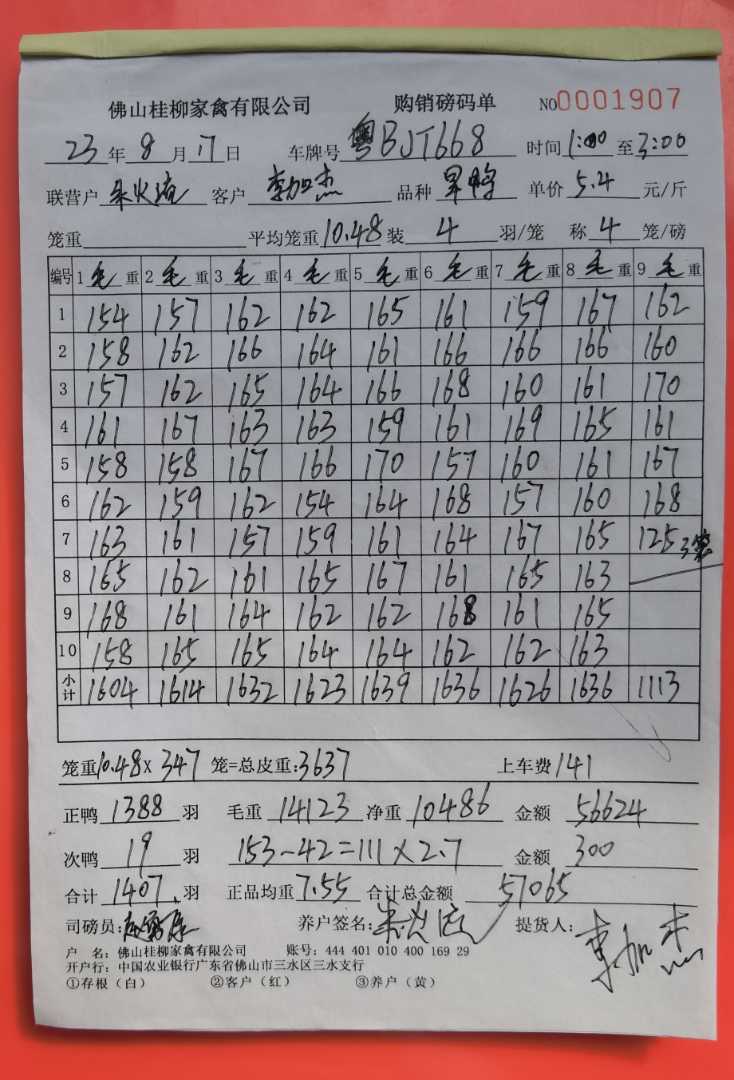 佛山桂柳家禽有限公司 购销磅码单 NO0001907
23年8月17日 车牌号粤BJT668 时间1:00至3:00
联营户 客户李加杰 品种 单价5.4元/斤
笼重 平均笼重10.48装4羽/笼 称4笼/磅
编号 1毛重 2毛重 3毛重 4毛重 5毛重 6毛重 7毛重 8毛重 9毛重
1 154 157 162 162 165 161 159 167 162
2 158 162 166 164 161 166 166 166 160
3 157 162 165 164 166 168 160 161 170
4 161 167 163 163 159 161 169 165 161
5 158 158 167 166 170 157 160 161 167
6 162 159 162 154 164 168 157 160 168
7 163 161 157 159 161 164 167 165 125 3笼
8 165 162 161 165 167 161 165 163
9 168 161 164 162 162 168 161 165
10 158 165 165 164 164 162 162 163
小计 1604 1614 1632 1623 1639 1636 1626 1636 1113
笼重10.48×347笼=总皮重:3637 上车费141
正鸭1388羽 毛重14123净重10486 金额56624
次鸭19羽 153-42=111×2.7 金额300
合计1407羽 正品均重7.55 合计总金额57065
司磅员: 养户签名: 提货人:李加杰
户 名:佛山桂柳家禽有限公司 账号:444 401 010 400 169 29
开户行:中国农业银行广东省佛山市三水区三水支行
①存根(白) ②客户(红) ③养户(黄)